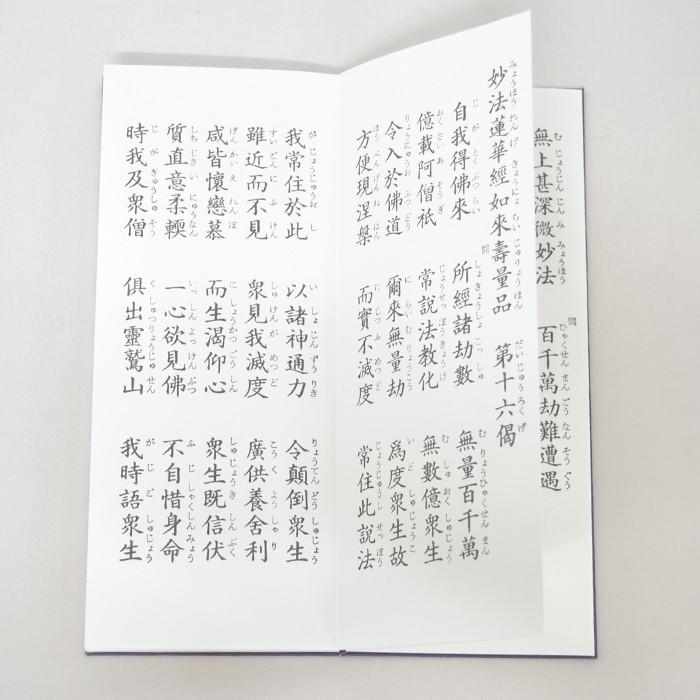 無上甚深微妙法 百千萬劫難遭遇
妙法蓮華經如來壽量品 第十六偈
自我得佛來 所經諸劫數 無量百千萬
億載阿僧祇 常説法教化 無數億衆生
令入於佛道 爾來無量劫 爲度衆生故
方便現涅槃 而實不滅度 常住此説法
我常住於此 以諸神通力 令顛倒衆生
雖近而不見 衆見我滅度 廣供養舍利
咸皆懷戀慕 而生渇仰心 衆生既信伏
質直意柔輭 一心欲見佛 不自惜身命
時我及衆僧 俱出靈鷲山 我時語衆生